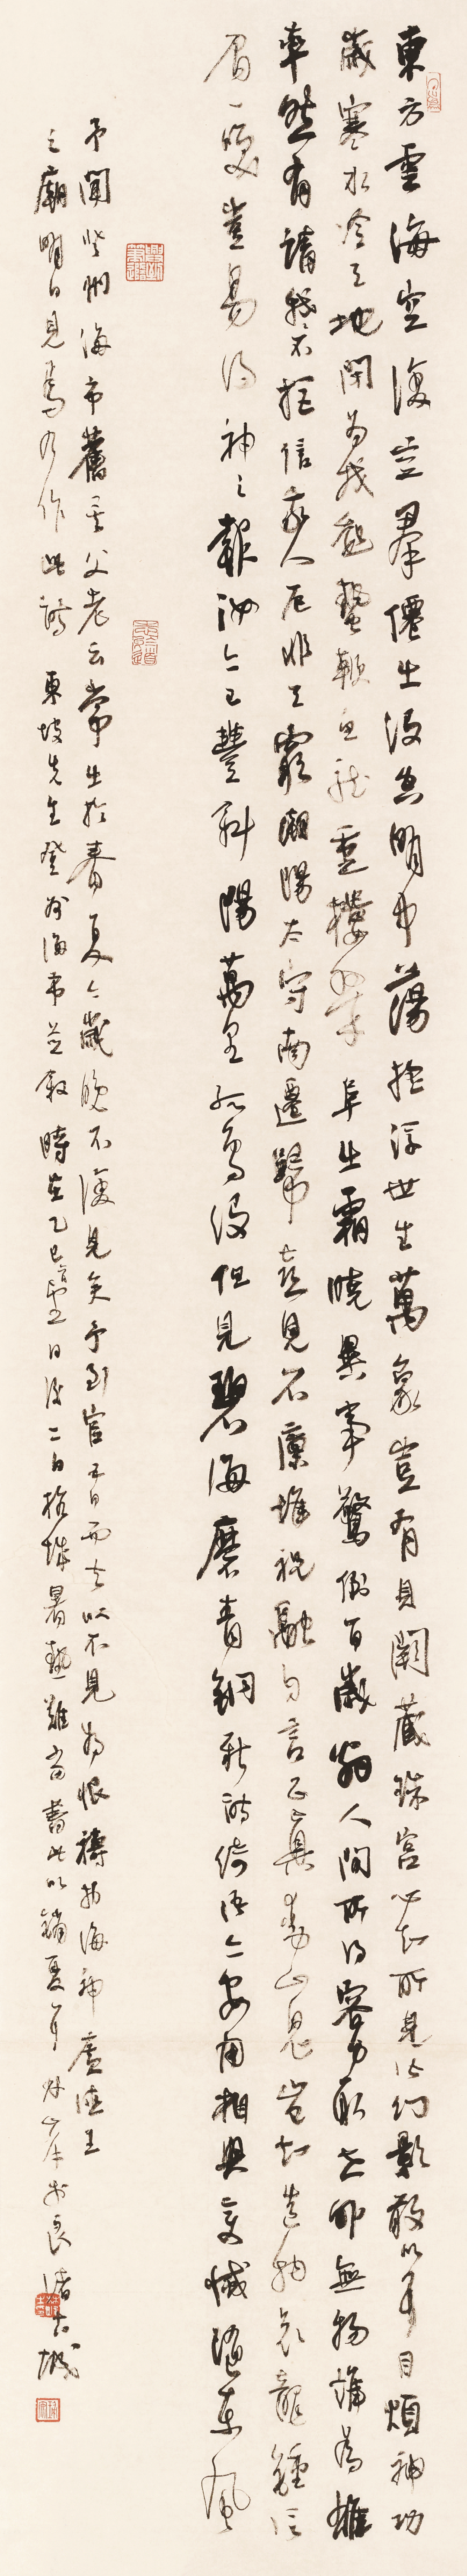 東方雲海空復空羣僊出沒空明中蕩搖浮世生萬象豈有貝闕藏珠宮心知所見皆幻影敢以耳目煩神功
歲寒水冷天地閉為我起蟄鞭魚龍重樓翠阜出霜曉異事驚倒百歲翁人間所得容力取世外無物誰為雄
率然有請不拒信我人厄非天窮潮陽太守南遷歸喜見石廩堆祝融自言正直動山鬼豈知造物哀龍鍾信
眉一笑豈易得神之報汝亦已豐斜陽萬里孤鳥沒但見碧海磨青銅新詩綺語亦安用相與變滅隨東風
予聞登州海市舊矣父老云常出於春夏今歲晚不復見矣予到官五日而去以不見為恨禱於海神廣德王
之廟明日見焉乃作此詩 東坡先生登州海市並叙 時在乙巳 日後二日 城暑熱難當書此以銷夏耳 於良渚 城